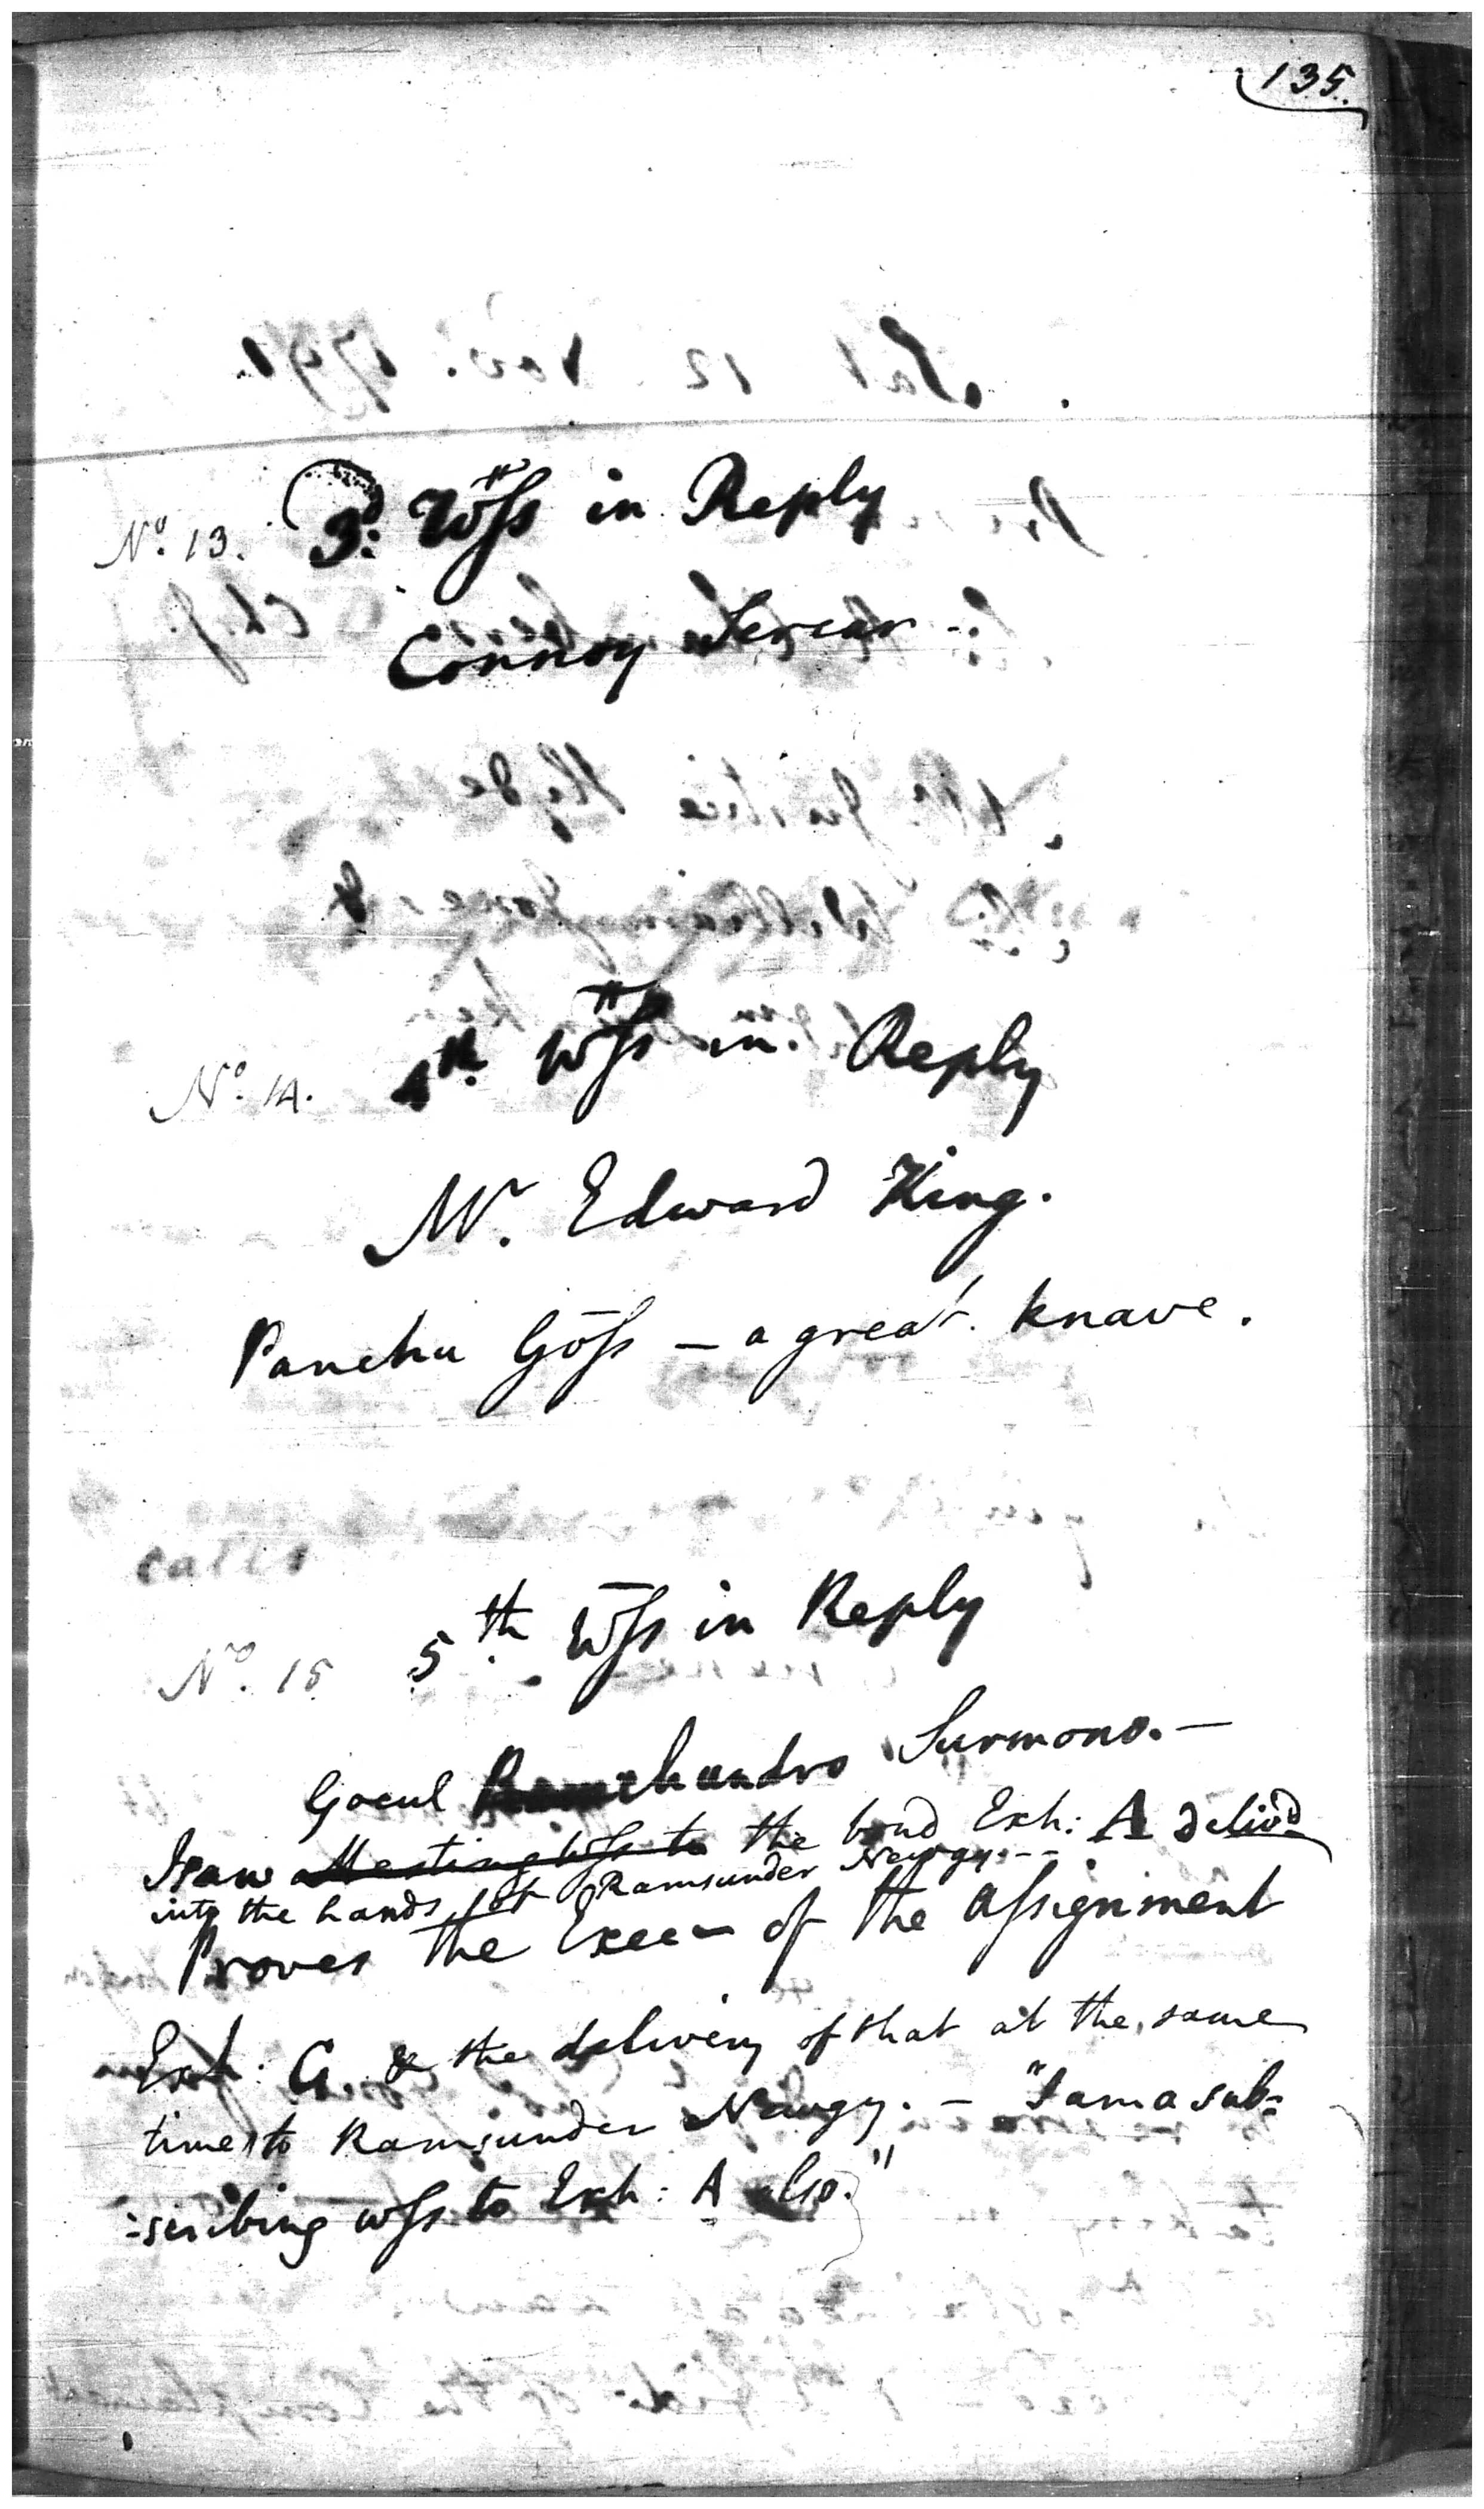 135.
No. 13. 3d. Wss in Reply
Connoy Sercar -
No. 14. 4th. Wss in Reply
Mr. Edward King.
Panchu Goss - a great knave.
No. 15 5th. Wss in Reply
Gocul chundro Surmono. -
I saw attesting wss to the bond Exh: A delivd
into the hands of Ramsunder Newgy. --
Proves the Execn of the assignment
Exh: G. & the delivery of that at the same
time to Ramsunder Neugy. - "I am a sub=
=scribing wss to Exh: A also."